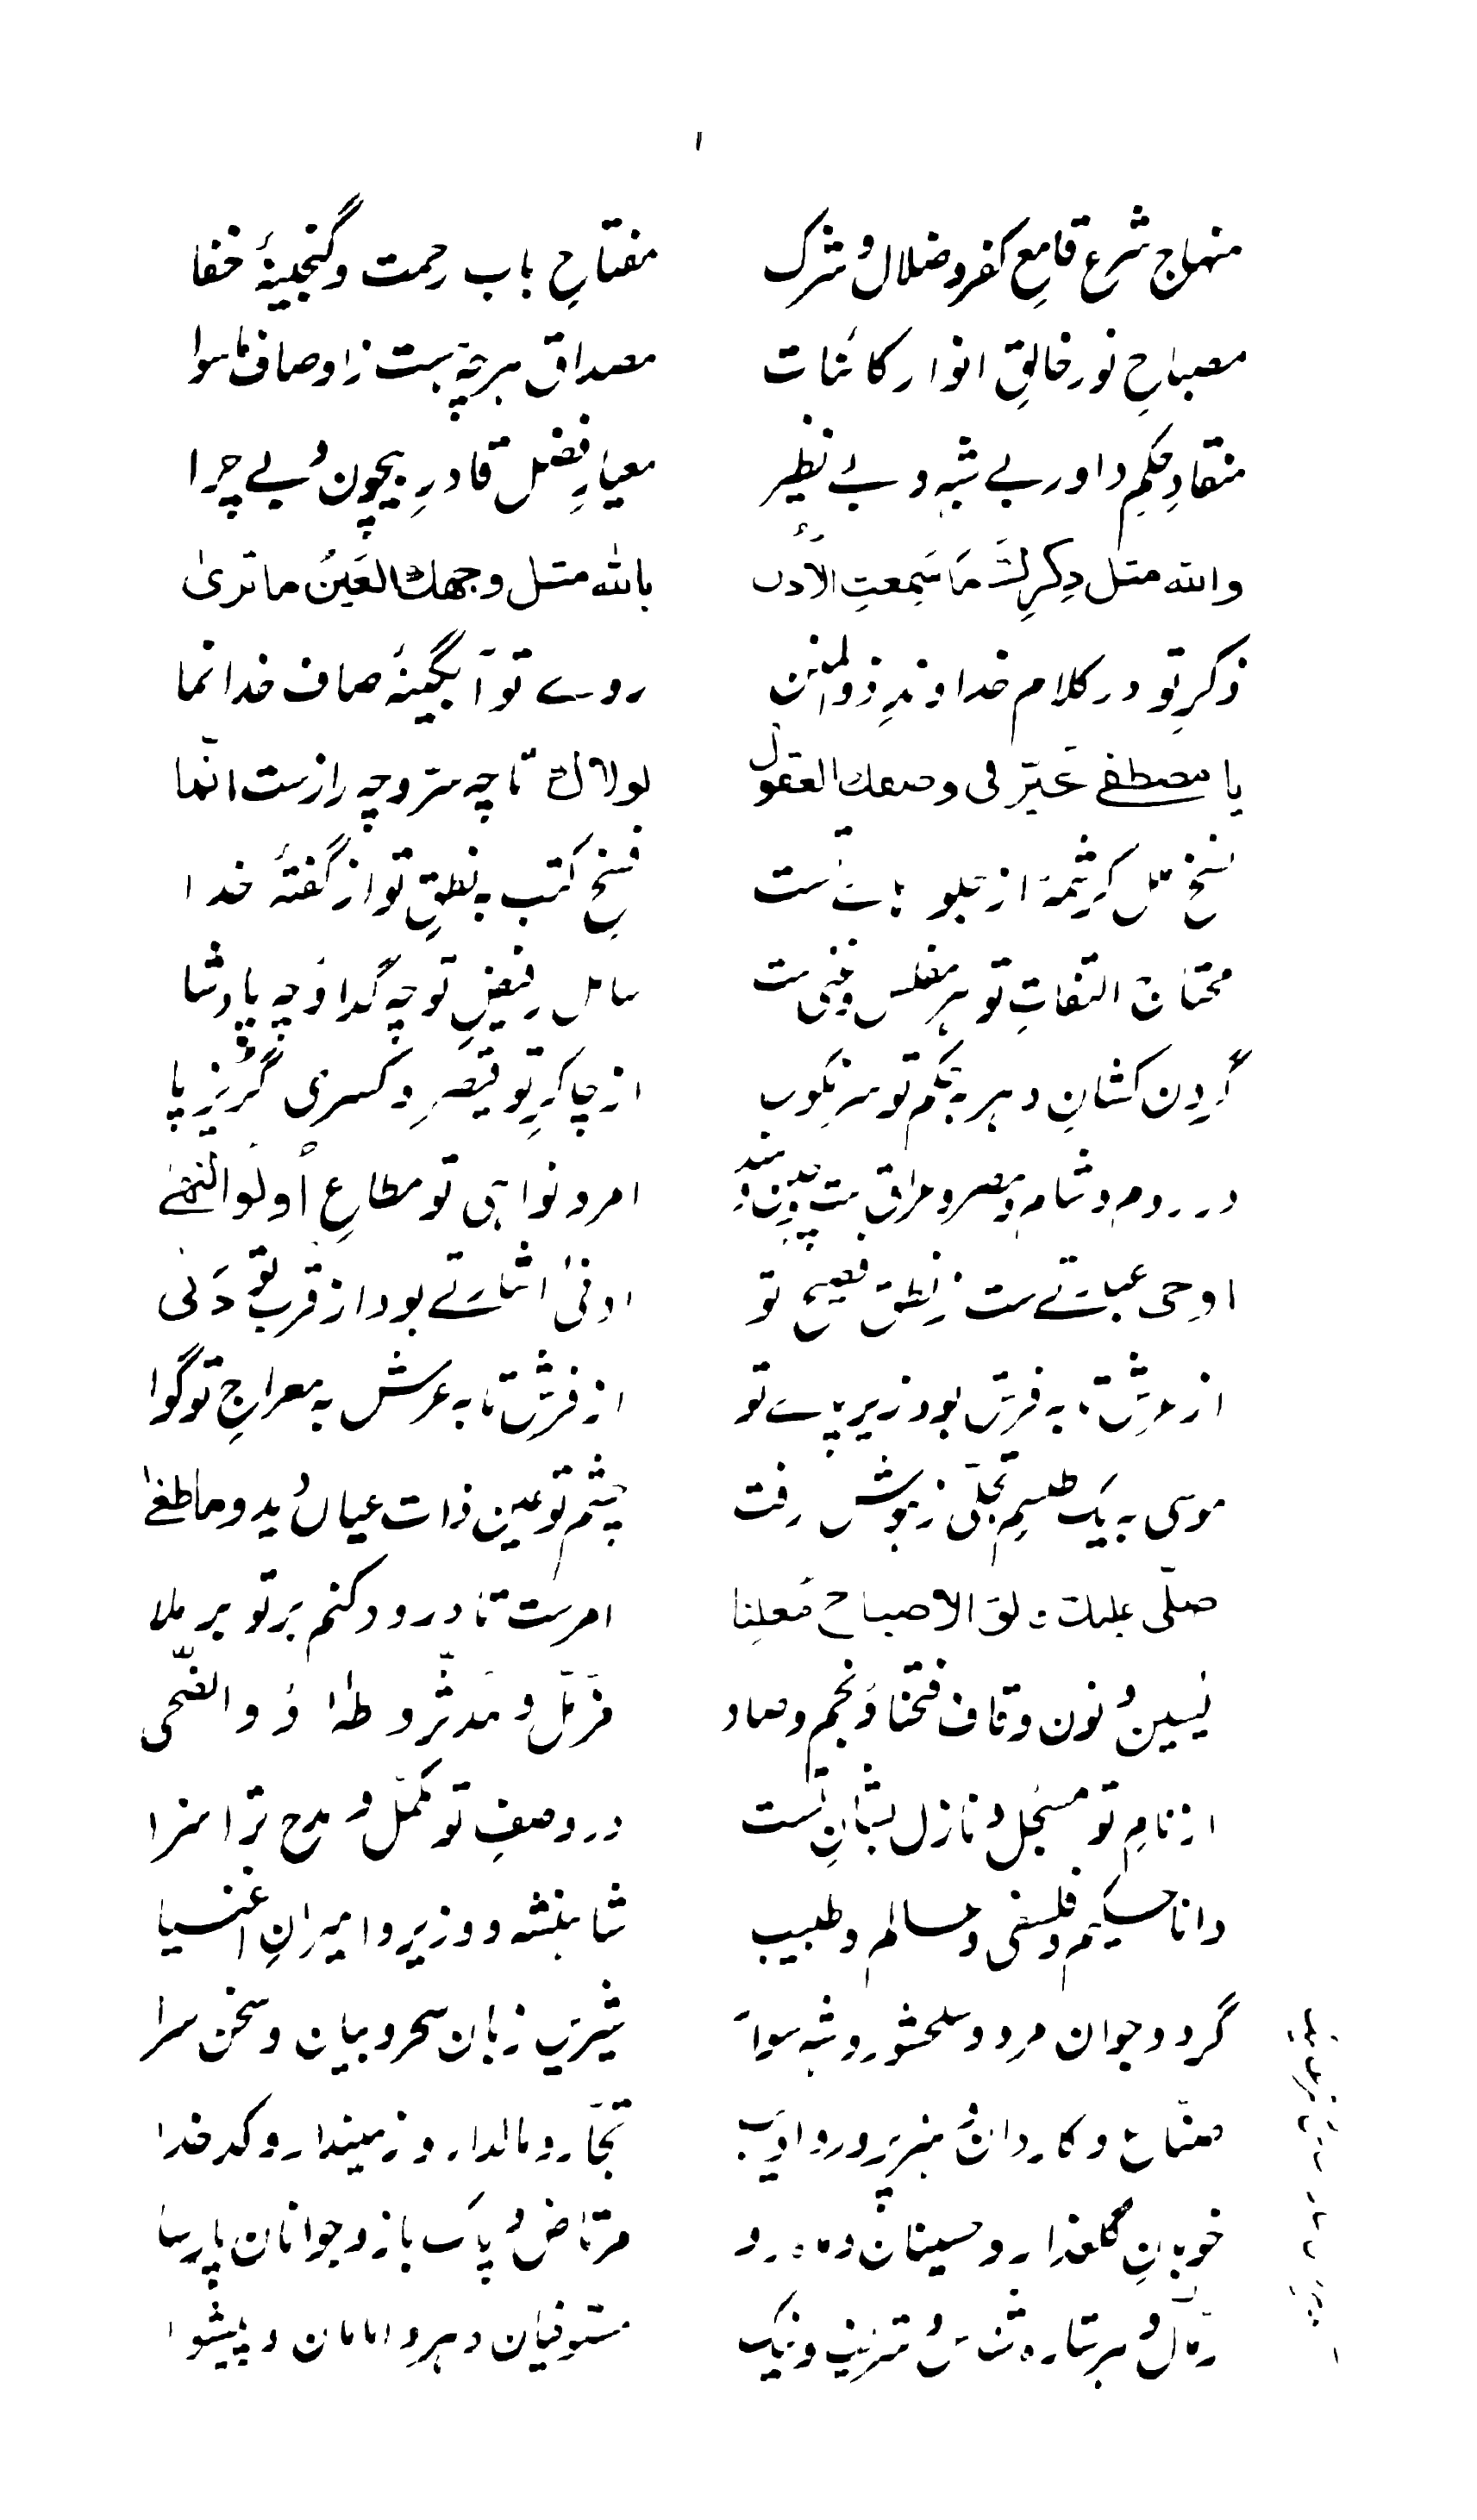 منہاجِ شرع قامعِ کفر و ضلال و شرک مفتاحِ باب رحمت و گنجینۂ خفا
مصباحِ نور خالقِ انوار کائنات مصداق ہرچہ ہست ز اوصاف ماسوا
منقادِ حکمِ داور بے شبہ و بے نظیر معیارِ فضل قادرِ بیچون و بے چرا
واللہ مثل ذِکرِكَ مَا سَمِعتِ الاُذن باللہ مثل وجھك العَین ما تریٰ
ذکرِ تو در کلام خداوندِ ذوالمنن روے تو آبگینۂ صاف خدا نما
یا مصطفےٰ تحیّر فی وصفك العقول لولاك تا چہ سرّ و چہ رازست انّما
نسخ ملل کرشمۂ از جلو ہات نسخِ کتب بہ نطقِ تو از گفتۂ خدا
محتاج التفاتِ تو ہر مفلس و غنی ست سائل ز فیضِ تو چہ گدا و چہ پادشا
گردن کشانِ دہر بحکمِ تو سرنگوں از چاکرِ تو قیصر و کسریٰ گریز پا
در روم و شام و مصر و عراق امر و نواہی تو مطاعِ اُولوالنُّھےٰ
اوحیٰ عبارتے ست ز نطق فصیح تو ادنیٰ اشارتے بود از قرب دَنیٰ
از عرش تا بہ فرش بود زیر پاے تو از فرش تا بہ عرش بہ معراجِ تو گوا
موسیٰ بہ یک طلسمِ تجلّی ز ہوش رفت چشمِ تو عینِ ذات عیاں دید و ماطغےٰ
صلّی علیك فالق الاصباح مُعلنا امرست تا درود کنم بر تو برملا
یٰسین و نون و قاف فتحنا و نجم و صاد مزمّل و مدثّر و طٰہٰ و والضّحیٰ
از نامِ تو مسجّل و نازل بشانِ تست در وصفِ تو مکمّل و مدح ترا سزا
دانا حکیم و فلسفی و عالم و طبیب شاہنشہ و وزیر و امیرانِ اغنیا
گرد و جوان مرد و سلحشور و شہسوار شیریں زبان و سحر بیان و سخن سرا
صنّاع و کاردان و ہنرپرور و ادیب تجّار و مالدار و زمیندار و کدخدا
خوبانِ گلعذار و حسینان مرتاض و پاک باز و جوانان پارسا
رمّال و ہر ستارہ شناس و شریف و نیک مستوفیان دہر و امامان و پیشوا